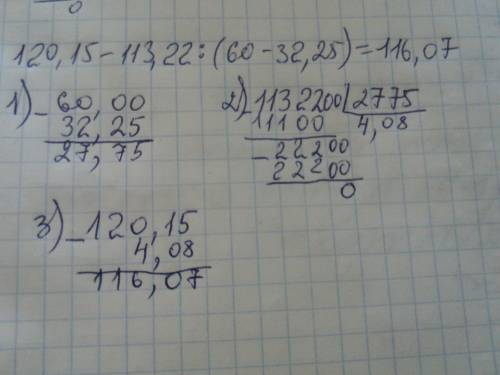 0
120,15-113,22:(60-32,25)=116,07
1) - 60,00
32,25
27,75
2) - 113220​0 | 2775
11100 4,08
- 22200
22200
0
3) - 120,15
4,08
116,07